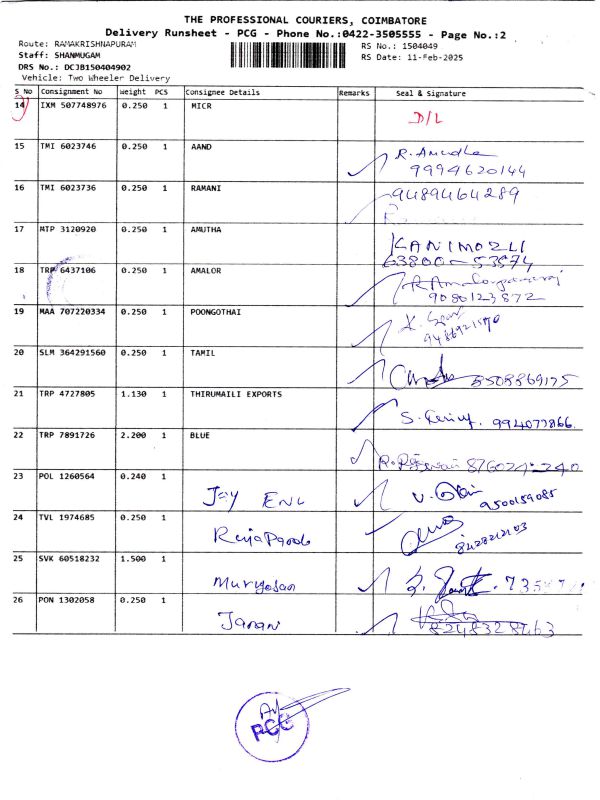 THE PROFESSIONAL COURIERS, COIMBATORE
Delivery Runsheet - PCG - Phone No.:0422-3505555 - Page No.:2
Route: RAMAKRISHNAPURAM
Staff: SHANMUGAM
DRS No.: DCJB150404902
Vehicle: Two Wheeler Delivery
RS No.: 1504049
RS Date: 11-Feb-2025
S No Consignment No Weight PCS Consignee Details Remarks Seal & Signature
14 IXM 507748976 0.250 1 MICR D/L
15 TMI 6023746 0.250 1 AAND R. Amudha
9994620144
16 TMI 6023736 0.250 1 RAMANI 9489464289
17 MTP 3120920 0.250 1 AMUTHA KANIMOZLI
63800-53574
18 TRP 6437106 0.250 1 AMALOR
9080123872
19 MAA 707220334 0.250 1 POONGOTHAI
20 SLM 364291560 0.250 1 TAMIL 8508869175
21 TRP 4727805 1.130 1 THIRUMAILI EXPORTS S. 994077866.
22 TRP 7891726 2.200 1 BLUE
23 POL 1260564 0.240 1 Jay ENL
9500159085
24 TVL 1974685 0.250 1
8428212103
25 SVK 60518232 1.500 1 Murugesan
26 PON 1302058 0.250 1 Janani
8248328463
PCG